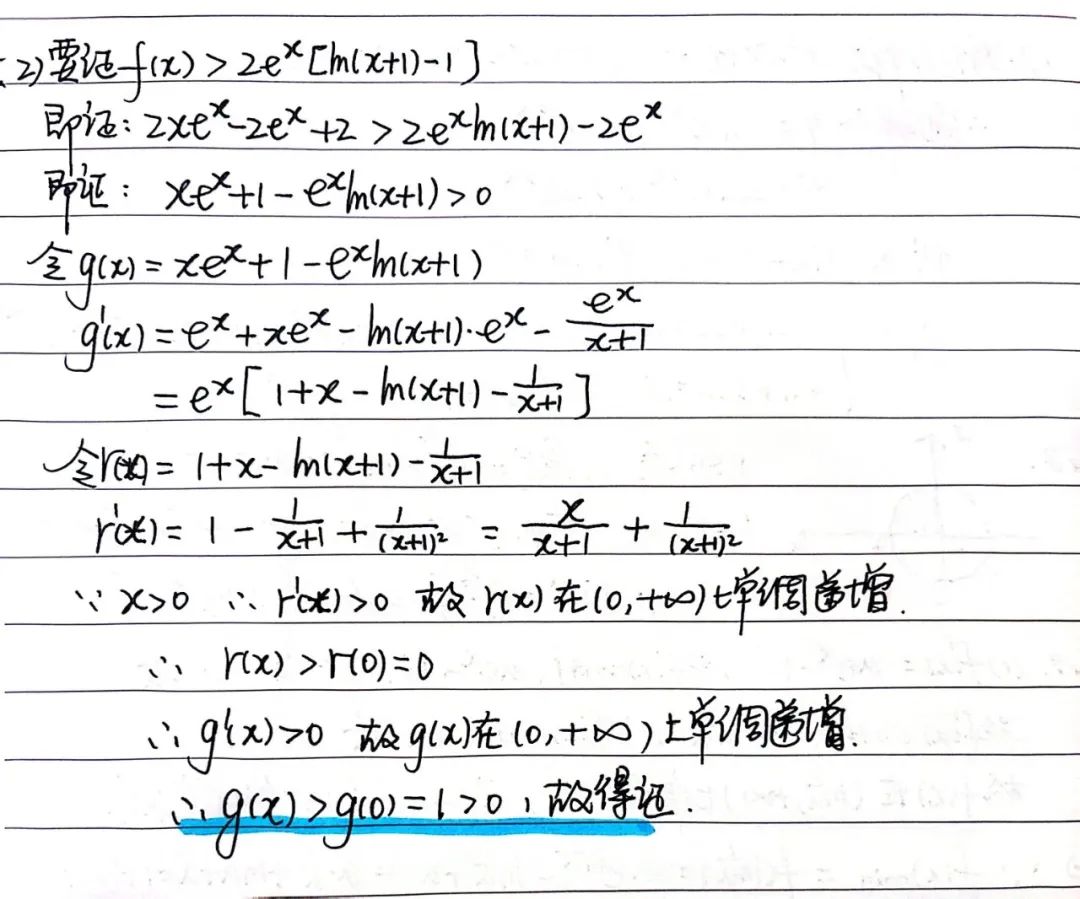 2)要证f(x)>2eˣ[ln(x+1)-1]
即证:2xeˣ-2eˣ+2>2eˣln(x+1)-2eˣ
即证:xeˣ+1-eˣln(x+1)>0
令g(x)=xeˣ+1-eˣln(x+1)
g'(x)=eˣ+xeˣ-ln(x+1)·eˣ-eˣ/(x+1)
=eˣ[1+x-ln(x+1)-1/(x+1)]
令r(x)=1+x-ln(x+1)-1/(x+1)
r'(x)=1-1/(x+1)+1/(x+1)²=x/(x+1)+1/(x+1)²
∵x>0 ∴r'(x)>0 故r(x)在(0,+∞)上单调递增.
∴r(x)>r(0)=0
∴g'(x)>0 故g(x)在(0,+∞)上单调递增.
∴g(x)>g(0)=1>0,故得证.